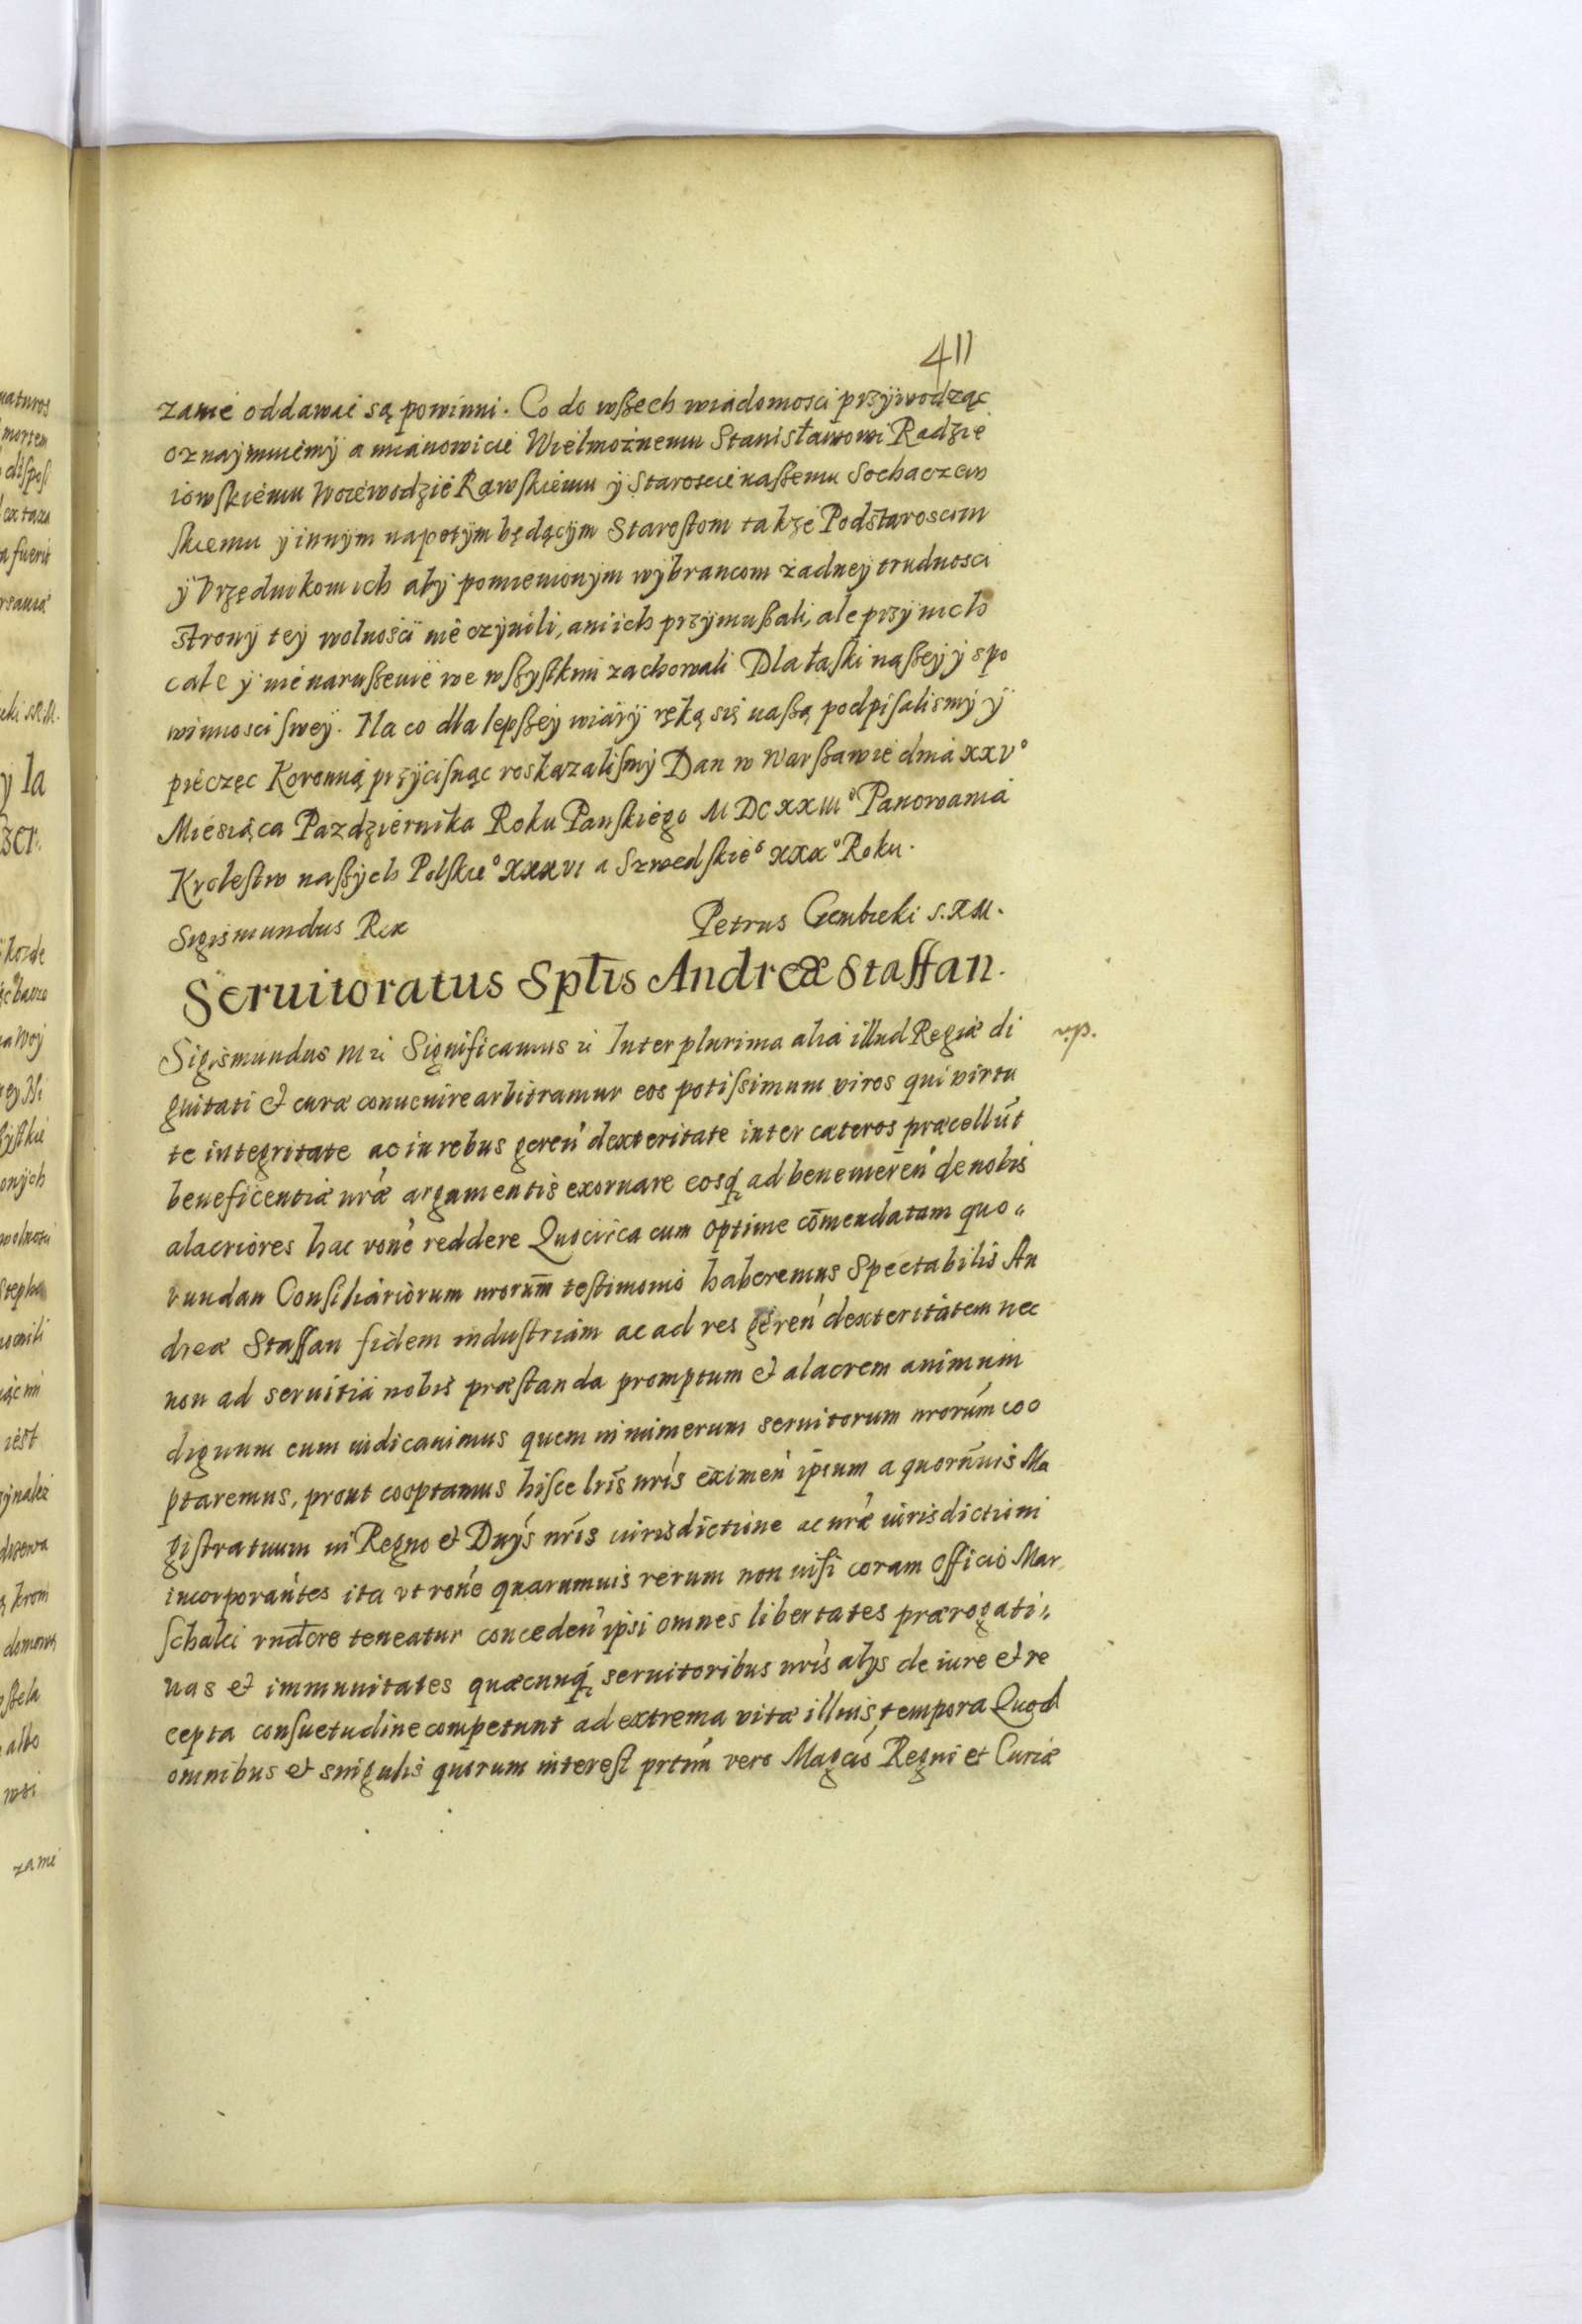 411
zanie oddawać są powinni. Co do wszech wiadomosci przÿwodząc
oznaÿmuiemÿ a mianowicie Wielmożnemu Stanisławowi Radzie
iowskiemu Woiewodzie Rawskiemu ÿ Staroscie naszemu Sochaczew
skiemu ÿ innÿm napotÿm będącÿm Starostom takze Podstaroscim
ÿ Vrzędnikom ich abÿ pomienionÿm wÿbrancom żadneÿ trudnosci
stronÿ teÿ wolnosci nie czÿnili, ani ich przÿmuszali, ale przÿ nich
cale ÿ nienaruszenie we wszÿstkim zachowali Dla łaski naszeÿ ÿ spo
winnosci sweÿ. Na co dla lepszeÿ wiarÿ ręką się naszą podpisalismÿ ÿ
pieczęc Koronną przÿcisnąc roskazalismÿ Dan w Warszawie dnia xxv°
Miesiąca Pazdziernika Roku Panskiego MDCxxiii° Panowania
Krolestw naszÿch Polskie° xxxvi a Szwedskie° xxx° Roku.
Sigismundus Rex Petrus Gembicki S.R.M.
Seruitoratus Sptis Andreæ Staffan.
Sigismundus m ii Significamus ii Inter plurima alia illud Regiæ di
gnitati et curæ conuenire arbitramur eos potissimum viros qui virtu
te integritate ac in rebus geren' dexteritate inter cæteros præcellūt
beneficentiæ nræ argumentis exornare eosq; ad benemeren' de nobis
alacriores hac rone reddere Quocirca cum optime cōmendatam quo„
rundan Consiliariorum nrorum testimonio haberemus Spectabilis An
dreæ Staffan fidem industriam ac ad res geren' dexteritatem nec
non ad seruitia nobis præstanda promptum et alacrem animum
dignum eum iudicauimus quem in numerum seruitorum nrorum coo
ptaremus, prout cooptamus hisce lris nris eximen' ipsum a quorūuis Ma
gistratuum in Regno et Dnÿs nris iurisdictione ac nræ iurisdictioni
incorporantes ita vt rone quarumuis rerum non nisi coram Officio Mar
schalci rndere teneatur conceden' ipsi omnes libertates prærogati„
uas et immunitates quæcunq; seruitoribus nris alÿs de iure et re
cepta consuetudine competunt ad extrema vitæ illius tempora Quod
omnibus et singulis quorum interest prtim vero Magcis Regni et Curiæ